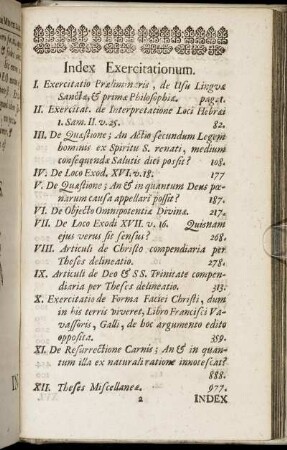 Index Exercitationum.
I. Exercitatio Præliminaris, de Usu Linguæ
Sanctæ, & primæ Philosophiæ, pag. 1.
II. Exercitat. de Interpretatione Loci Hebræi
1. Sam. II. v. 25. 82.
III. De Quæstione; An Actio secundum Legem
hominis ex Spiritu S. renati, medium
consequendæ Salutis dici possit? 108.
IV. De Loco Exod. XVI. v. 18. 177
V. De Quæstione; An & in quantum Deus pæ-
narum causa appellari possit? 187.
VI. De Objecto Omnipotentiæ Divinæ. 217.
VII. De Loco Exodi XVII. v. 16. Quisnam
ejus verus sit sensus? 268.
VIII. Articuli de Christo compendiaria per
Theses delineatio. 278.
IX. Articuli de Deo & SS. Trinitate compen-
diaria per Theses delineatio. 313.
X. Exercitatio de Forma Faciei Christi, dum
in his terris viveret, Libro Francisci Va-
vassoris, Galli, de hoc argumento edito
opposita. 359.
XI. De Resurrectione Carnis; An & in quan-
tum illa ex naturali ratione innotescat?
888.
XII. Theses Miscellaneæ. 977.
2 INDEX